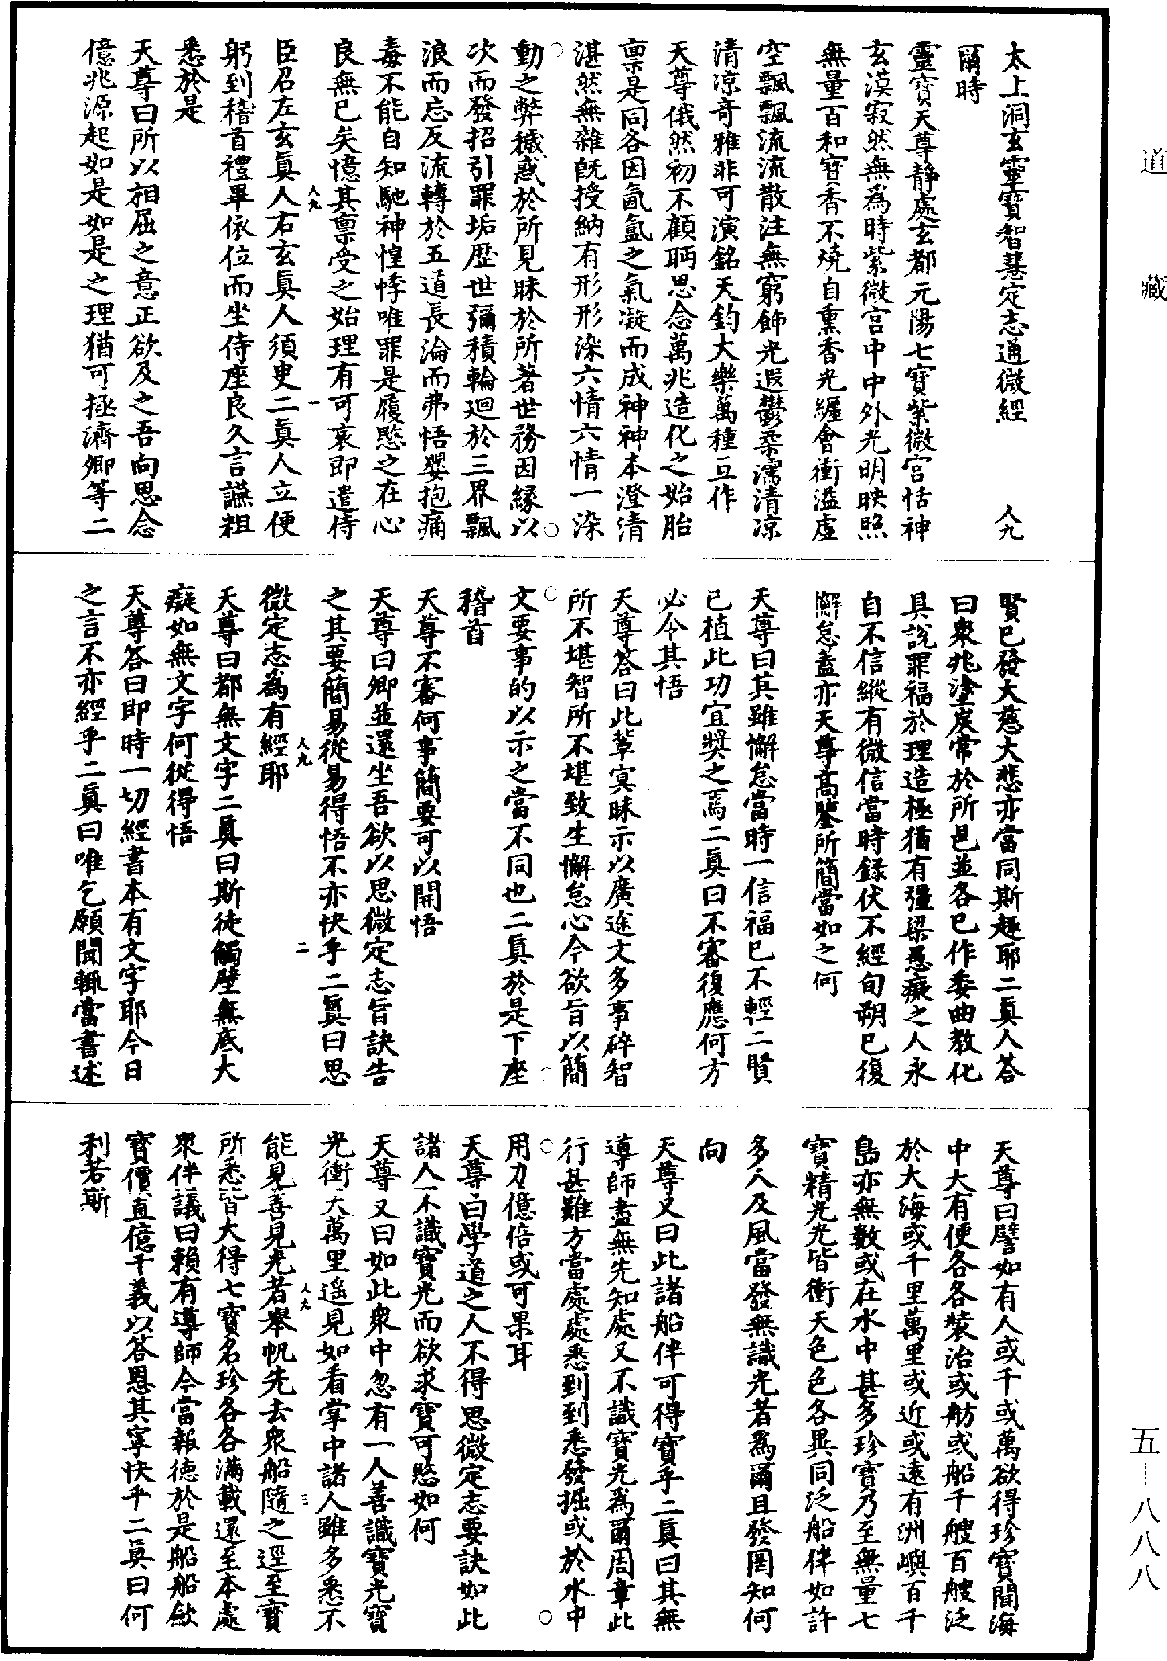 道藏
五—八八八
太上洞玄靈寶智慧定志通微經 人九
爾時
靈寶天尊靜處玄都元陽七寶紫微宮恬神
玄漠寂然無為時紫微宮中中外光明映照
無量百和寶香不燒自熏香光纏會衝溢虛
空飄飄流流散注無窮飾光遐鬱柔濡清涼
清涼奇雅非可演銘天鈞大樂萬種互作
天尊俄然初不顧眄思念萬兆造化之始胎
稟是同各因氤氳之氣凝而成神神本澄清
湛然無雜既授納有形形染六情六情一染
動之弊穢惑於所見昧於所著世務因緣以
次而發招引罪垢歷世彌積輪迴於三界飄
浪而忘反流轉於五道長淪而弗悟嬰抱痛
毒不能自知馳神惶悸唯罪是履愍之在心
良無已矣憶其稟受之始理有可哀即遣侍
臣召左玄真人右玄真人須臾二真人立便
躬到稽首禮畢依位而坐侍座良久言議粗
悉於是
天尊曰所以相屈之意正欲及之吾向思念
億兆源起如是如是之理猶可拯濟卿等二
賢已發大慈大悲亦當同斯趣耶二真人答
曰眾兆塗炭常於所邑並各已作委曲教化
具說罪福於理造極猶有彊梁愚癡之人永
自不信縱有微信當時錄伏不經旬朔已復
懈怠盡亦天尊高鑒所簡當如之何
天尊曰其雖懈怠當時一信福已不輕二賢
已植此功宜獎之焉二真曰不審復應何方
必令其悟
天尊答曰此輩冥昧示以廣途文多事碎智
所不堪智所不堪致生懈怠心今欲旨以簡
文要事的以示之當不同也二真於是下座
稽首
天尊不審何事簡要可以開悟
天尊曰卿並還坐吾欲以思微定志旨訣告
之其要簡易從易得悟不亦快乎二真曰思
微定志為有經耶
天尊曰都無文字二真曰斯徒觸壁無底大
癡如無文字何從得悟
天尊答曰即時一切經書本有文字耶今日
之言不亦經乎二真曰唯乞願聞輒當書述
天尊曰譬如有人或千或萬欲得珍寶聞海
中大有便各各裝治或舫或船千艘百艘泛
於大海或千里萬里或近或遠有洲嶼百千
島亦無數或在水中甚多珍寶乃至無量七
寶精光光皆衝天色色各異同泛船伴如許
多人及風當發無識光者為爾且發罔知何
向
天尊又曰此諸船伴可得寶乎二真曰其無
導師盡無先知處又不識寶光為爾周章此
行甚難方當處處悉到到悉發掘或於水中
用力億倍或可果耳
天尊曰學道之人不得思微定志要訣如此
諸人不識寶光而欲求寶可愍如何
天尊又曰如此眾中忽有一人善識寶光寶
光衝天萬里遥見如看掌中諸人雖多悉不
能見善見光者舉帆先去眾船隨之逕至寶
所悉皆大得七寶名珍各各滿載還至本處
眾伴議曰賴有導師今當報德於是船船歛
寶價直億千義以答恩其寧快乎二真曰何
利若斯